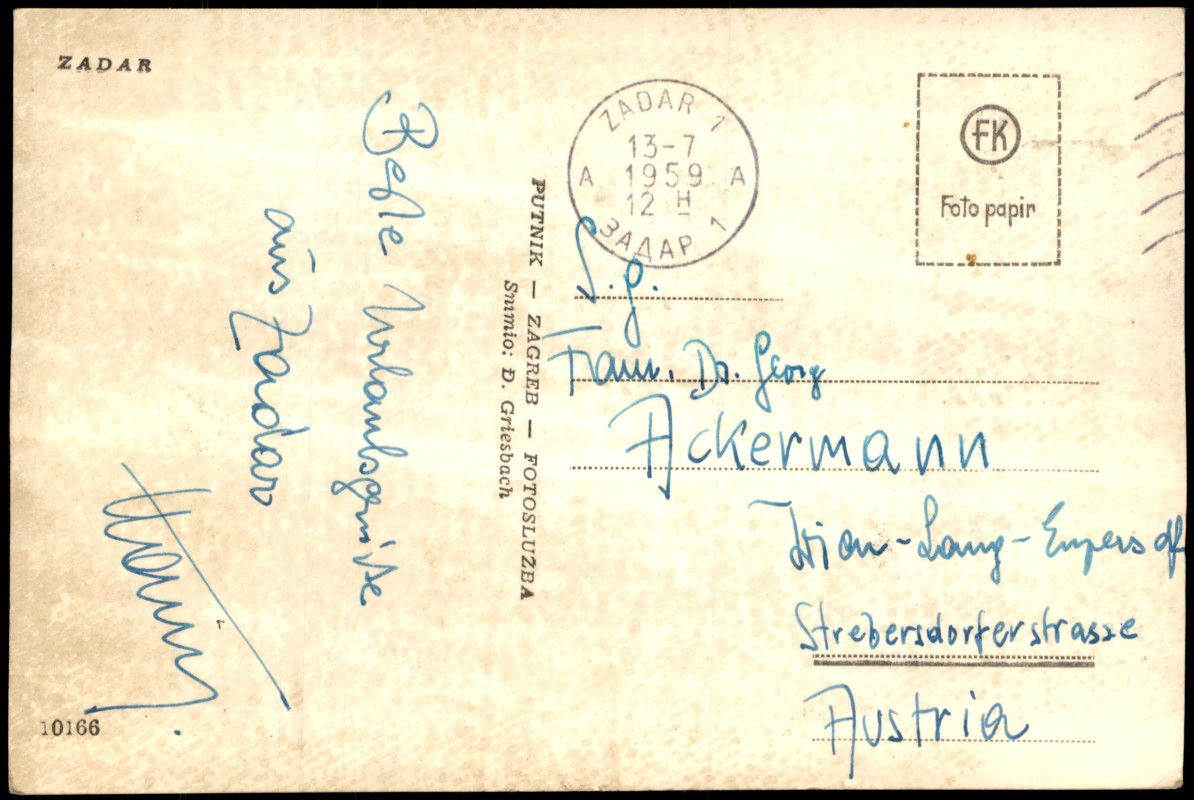 ZADAR
Beste Urlaubsgrüße
aus Zadar
10166
PUTNIK — ZAGREB — FOTOSLUŽBA
Snimio: Đ. Griesbach
ZADAR 1
13-7
A 1959 A
12 H
ЗАДАР 1
FK
Foto papir
S. g.
Fam. Dr. Georg
Ackermann
Wien-Lang-Enzersdf
Strebersdorferstrasse
Austria